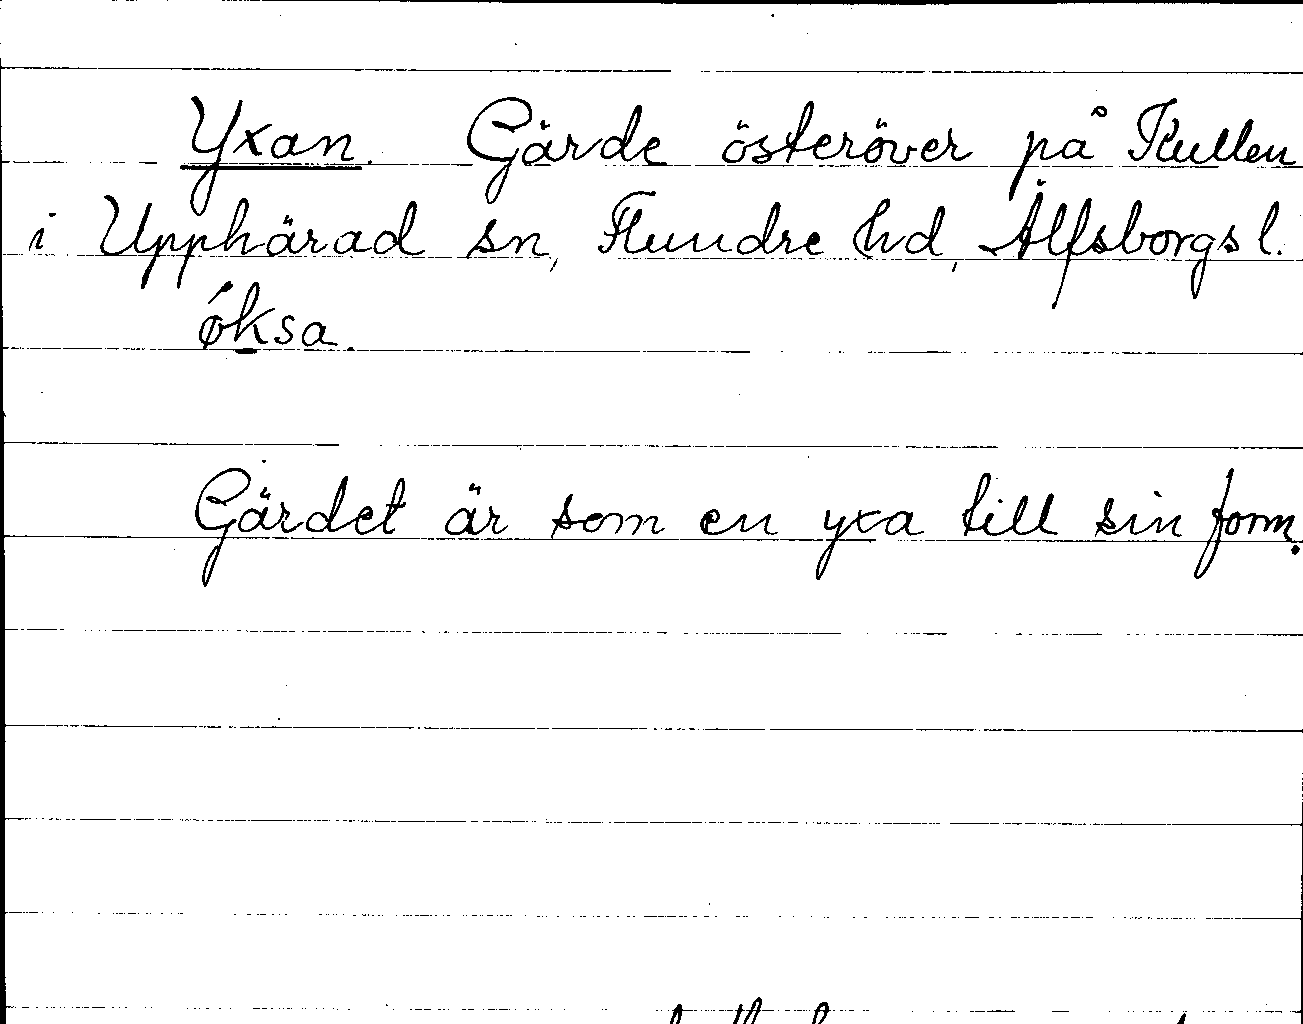 Yxan. Gärde österöver på Kullen
i Upphärad sn, Flundre hd, Älfsborgs l.
ǿksa.
Gärdet är som en yxa till sin form.